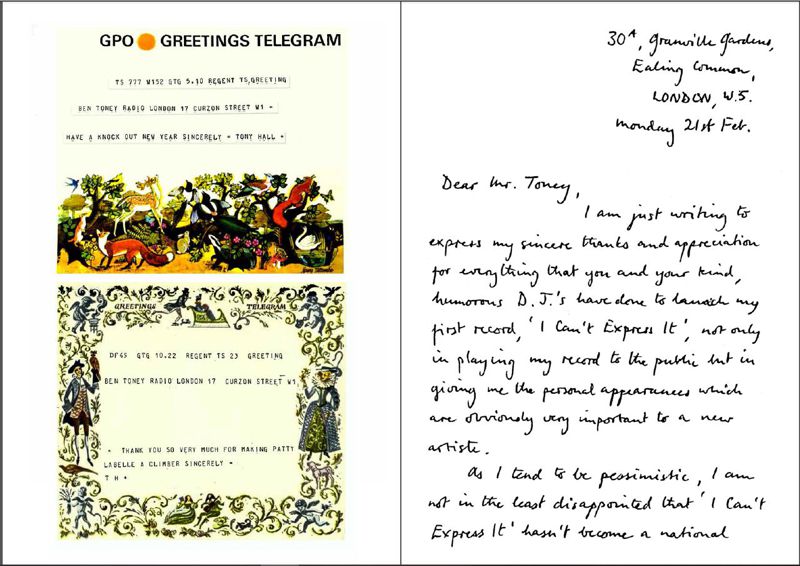 GPO GREETINGS TELEGRAM
TS 777 W152 GTG 5.10 REGENT TS,GREETING
BEN TONEY RADIO LONDON 17 CURZON STREET W1 =
HAVE A KNOCK OUT NEW YEAR SINCERELY = TONY HALL +
GREETINGS TELEGRAM
DF45 GTG 10.22 REGENT TS 23 GREETING
BEN TONEY RADIO LONDON 17 CURZON STREET W1
= THANK YOU SO VERY MUCH FOR MAKING PATTY
LABELLE A CLIMBER SINCERELY =
T H +
30A, Granville Gardens,
Ealing Common,
LONDON, W.5.
Monday 21st Feb.
Dear Mr. Toney,
I am just writing to
express my sincere thanks and appreciation
for everything that you and your kind,
humorous D.J.'s have done to launch my
first record, 'I Can't Express It', not only
in playing my record to the public but in
giving me the personal appearances which
are obviously very important to a new
artiste.
As I tend to be pessimistic, I am
not in the least disappointed that 'I Can't
Express It' hasn't become a national